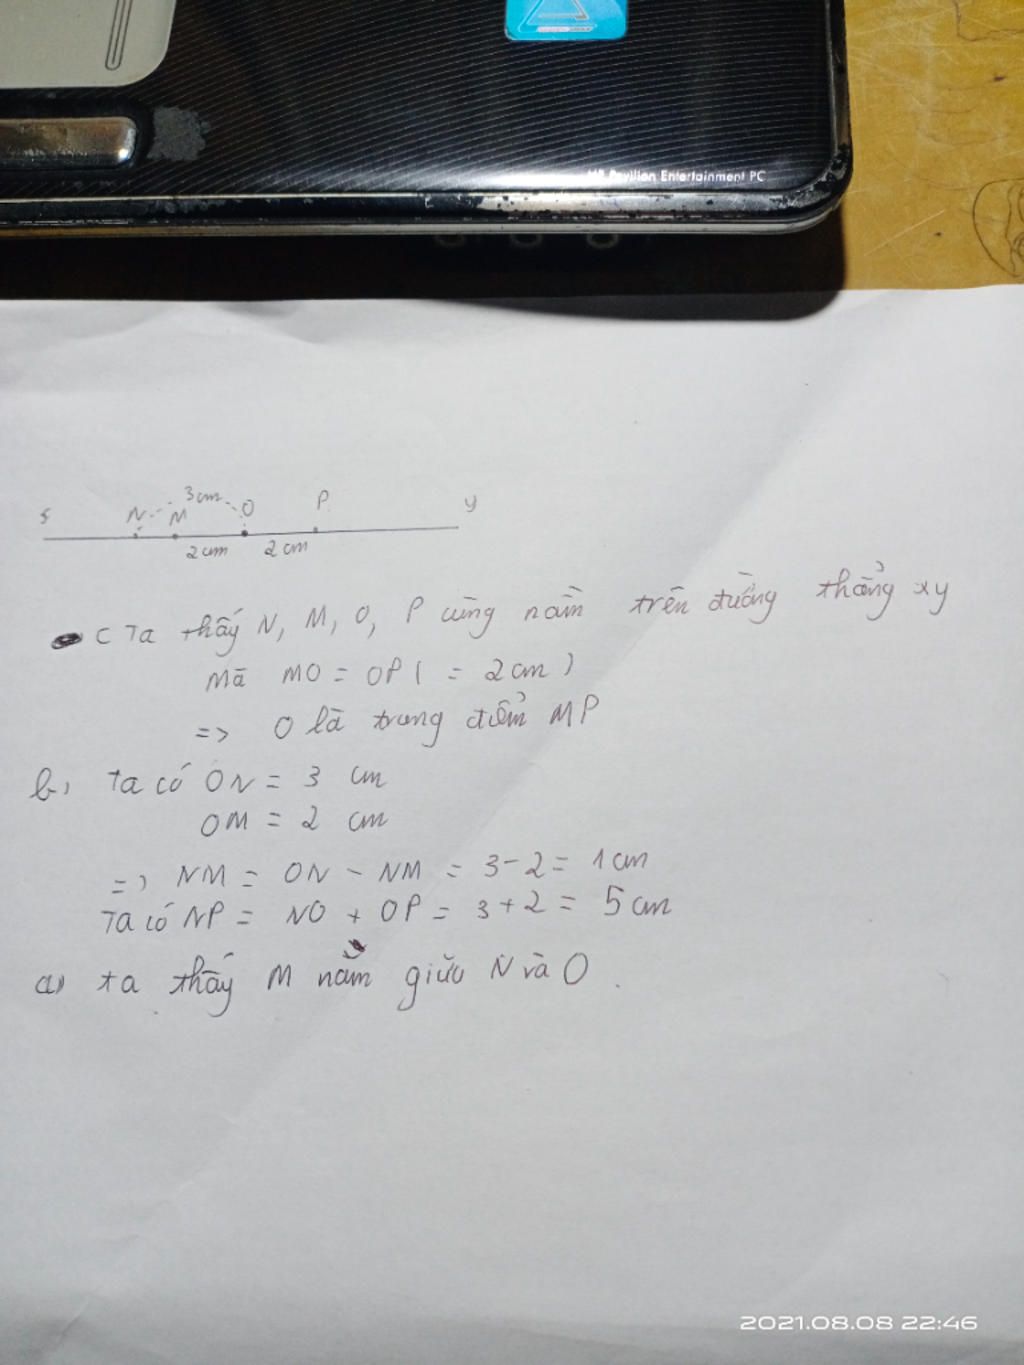 HP Pavilion Entertainment PC
3cm
N M O P y
2cm 2cm
c Ta thấy N, M, O, P cùng nằm trên đường thẳng xy
Mà MO = OP ( = 2cm )
=> O là trung điểm MP
b, Ta có ON = 3 cm
OM = 2 cm
=> NM = ON - NM = 3-2 = 1cm
Ta có NP = NO + OP = 3+2 = 5cm
a) ta thấy M nằm giữa N và O.
2021.08.08 22:46